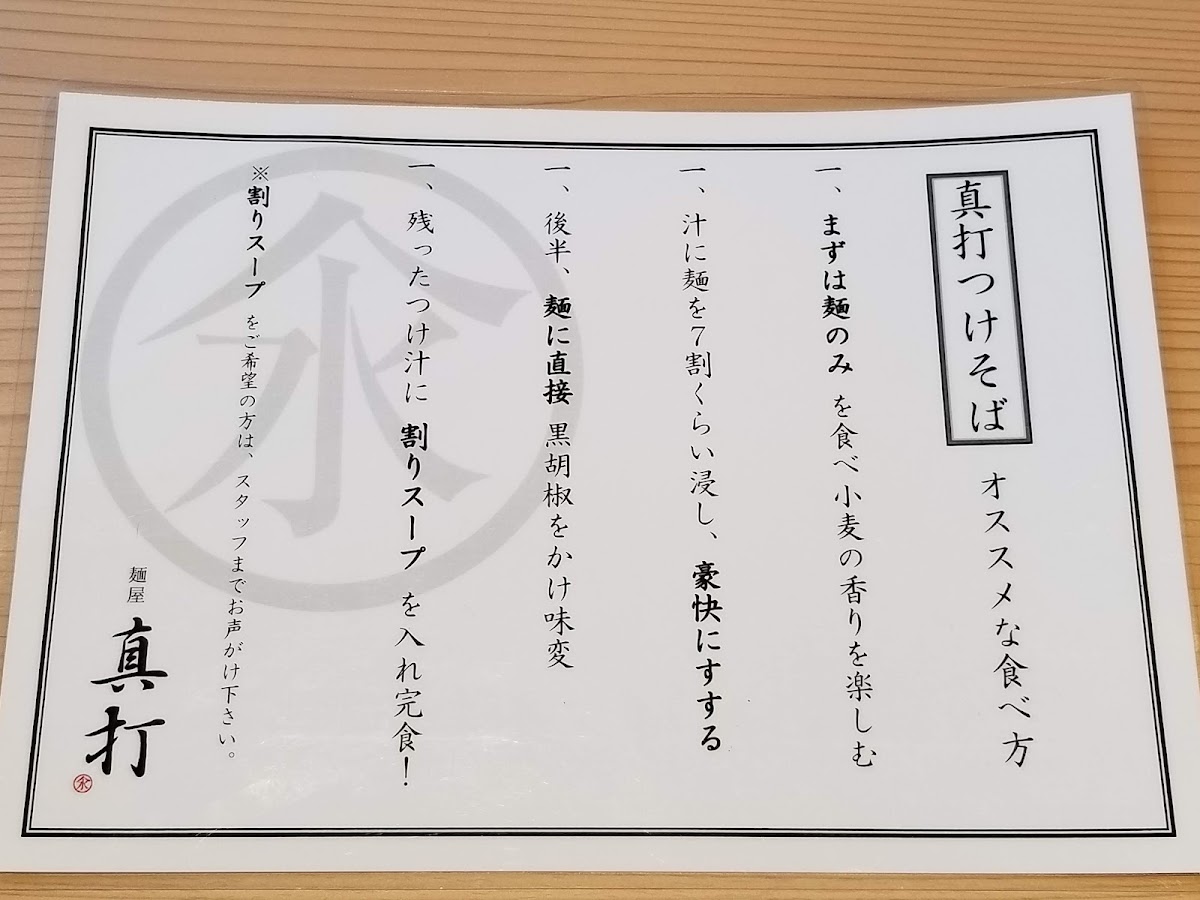 真打つけそば オススメな食べ方
一、まずは麺のみ を食べ小麦の香りを楽しむ
一、汁に麺を7割くらい浸し、豪快にすする
一、後半、麺に直接 黒胡椒をかけ味変
一、残ったつけ汁に 割りスープ を入れ完食!
※割りスープ をご希望の方は、スタッフまでお声がけ下さい。
麺屋 真打